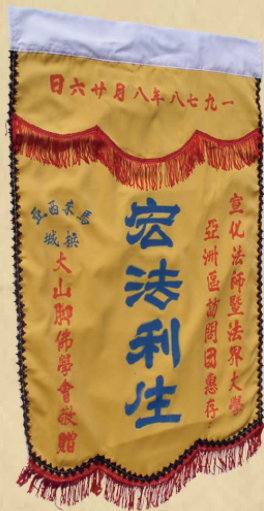 一九七八年八月廿六日
宣化法師暨法界大學
亞洲區訪問团惠存
宏法利生
馬來西亞
檳城
大山脚佛學會敬贈